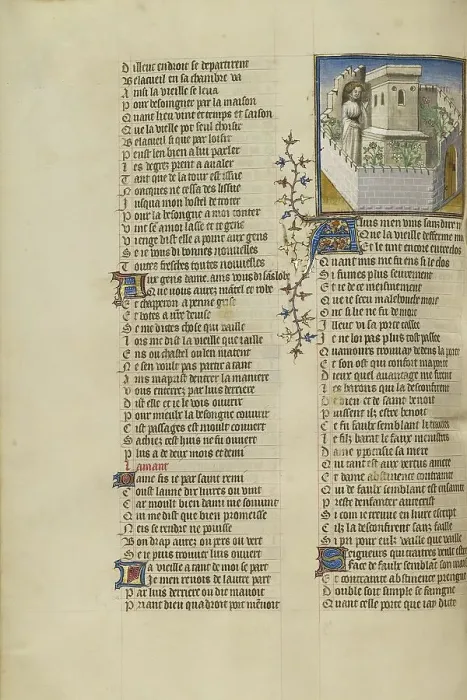 D illeur endroit se departirent
B elacueil en sa chambre va
A insi la vieille se leva
P our besoingner par la maison
Q uant lieu vint et temps et saison
Q ue la vielle pot seul choisir
B elacueil si que par loisir
P eust len bien a lui parler
L es degrez prent a avaler
T ant que de la tour est issue
N oncques ne cessa des lissue
J usqua mon hostel de troter
P our la besongne a moi conter
V int se amoi lasse et
V ienge dist elle a point aux gens
S e je vous di bonnes nouvelles
T outes fresches toutes nouvelles
A ux gens dame ains vous di sans lobe
Q ue vous aurez mantel et robe
E t chapperon a penne grise
E t botes a devise
S e me dites chose qui vaille
L ors me dist la vieille que iaille
E ns ou chastel ou len matent
N e sen voult pas partir a tant
A ins maprist dentrer la maniere
V ous enterrez par luis derriere
D ist elle et je le vois ouvrir
P our mieulx la besongne couvrir
C ist passages est moult couvert
S achiez cest huis ne fu ouvert
P lus a de deux mois et demi
L amant
D ame fis je par saint remi
C oust laune dix livres ou vint
C ar moult bien damis me souvint
Q ui me dist que bien promeisse
N eis se rendre ne pouisse
B on drap aurez ou pers ou vert
S e je puis trouver luis ouvert
L a vieille a tant de moi se part
Je men revois de lautre part
P ar luis derriere ou dit mavoit
P riant dieu qua droit port menoit
A luis men vins sanz dire
Q ue la vieille desferme
E t le tint encore entreclos
Q uant me mis ens si le clos
S i fumes plus seurement
E t je de ce meismement
Q ue je sceu malebouche mort
O nc si lie ne fu de mort
Illeuc vi sa porte cassee
J e ne loi pas plus tost passee
Q uamours trouvay dedens la porte
E t son ost qui confort maporte
D ieux quel avantage me firent
L es barons qui la desconfirent
De dieu et de saint benoit
P uissent ilz estre benoit
C e fu faulx semblant le
L e filz barat le faux
D ame ypocrisie sa mere
Q ui tant est aux vertus amere
E t dame abstinence contrainte
Q ui de faulx semblant est enceinte
P reste denfanter antecrist
S i com je treuve en livre escript
C ilz la desconfirent sanz faille
S i pri pour eulx vaille que vaille
S eigneurs qui traitres veult estre
F ace de faulx semblant son
E t contrainte abstinence
D ouble soit simple se faingne
Q uant celle porte que jay dite